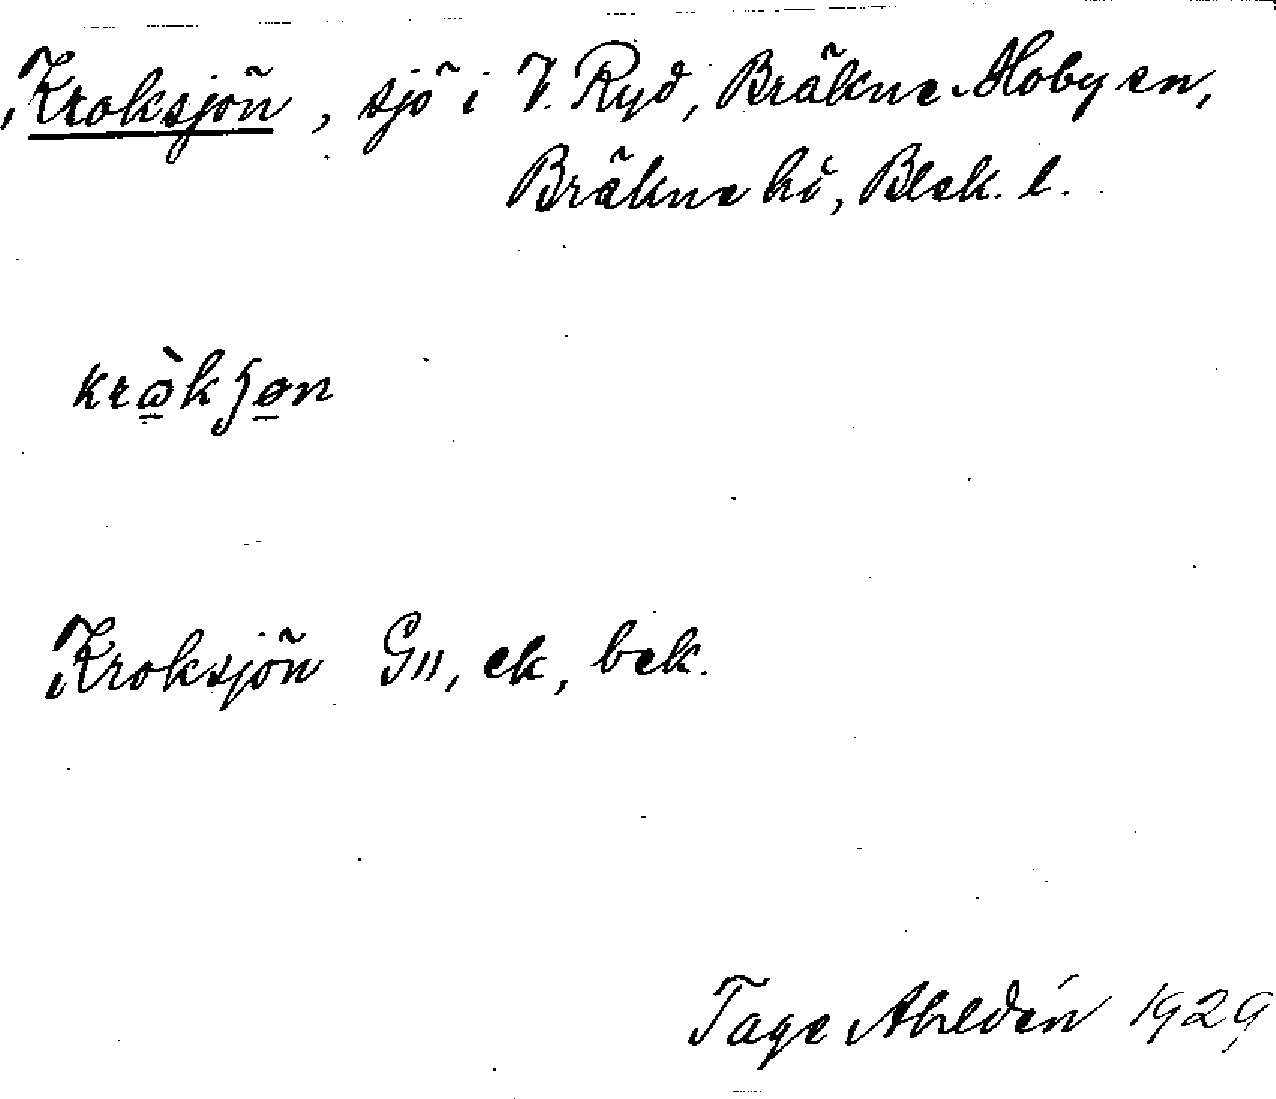 Kroksjön, sjö i V. Ryd, Bräkne-Hoby sn,
Bräkne hd, Blek. l.
krὼkʃøn
Kroksjön G11, ek, bek.
Tage Ahldén 1929